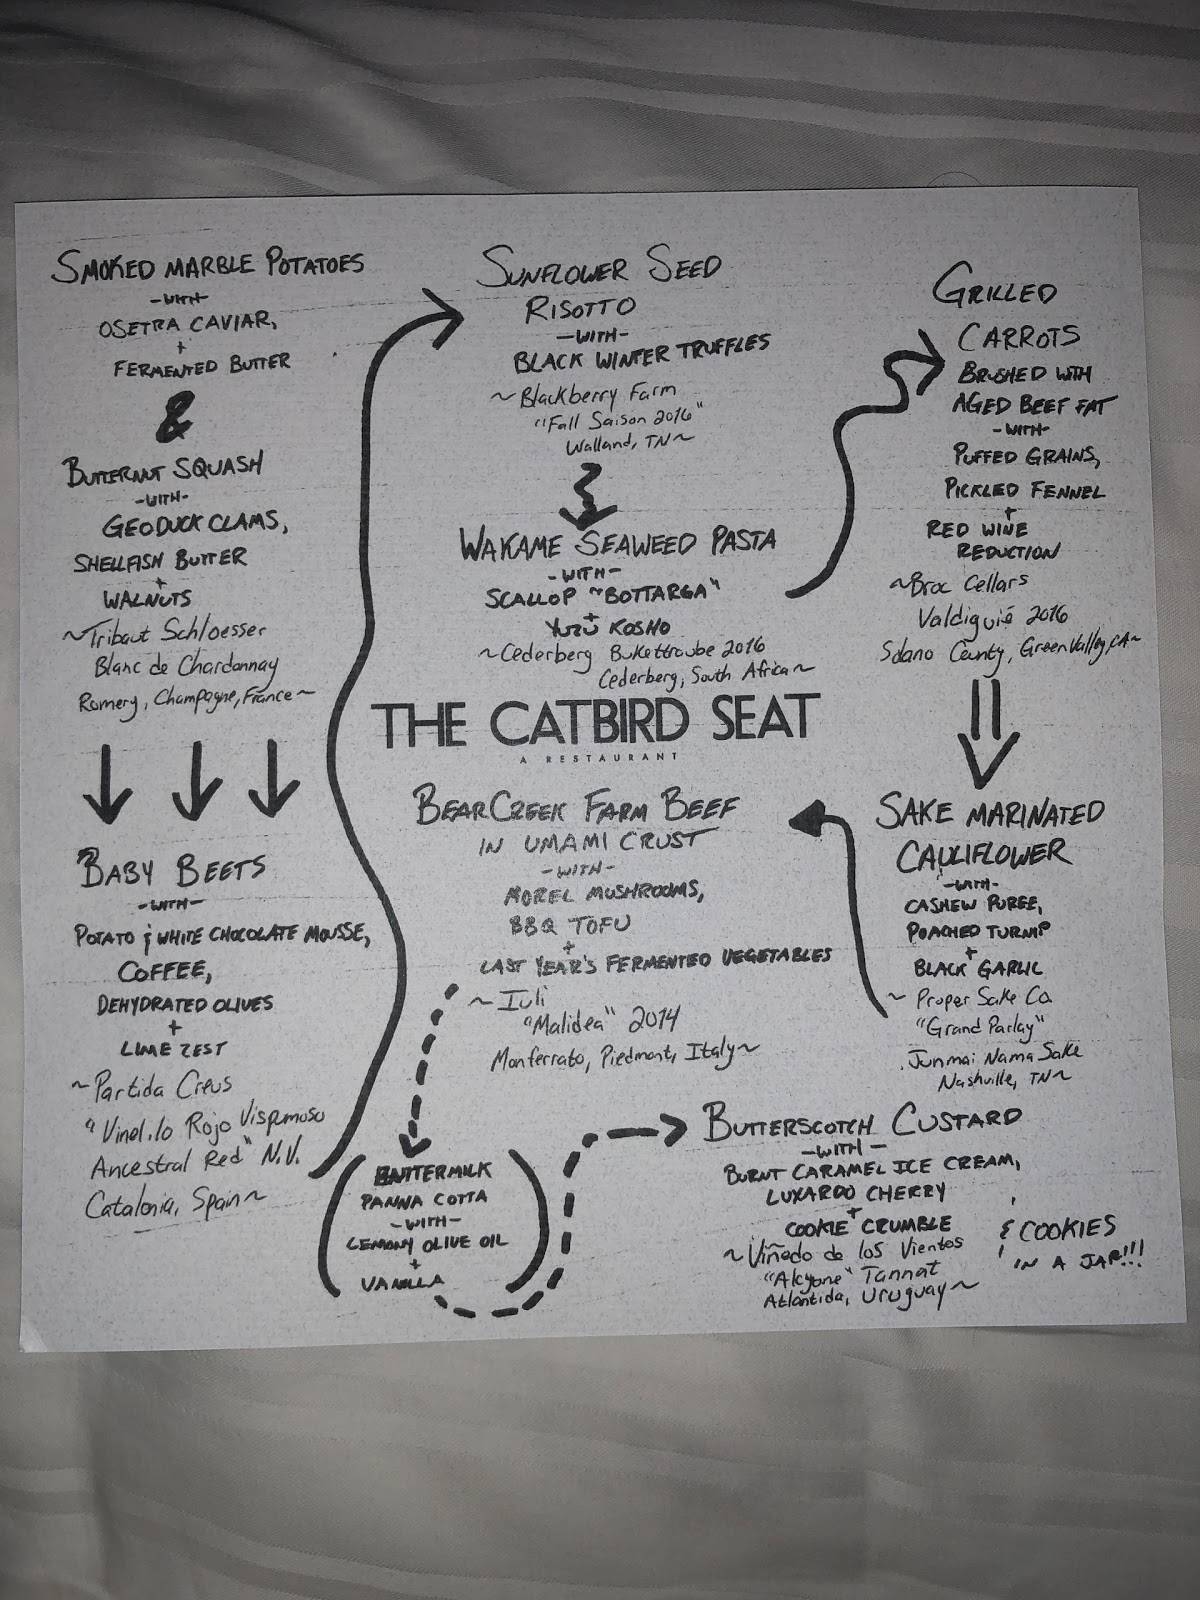 SMOKED MARBLE POTATOES
-WITH-
OSETRA CAVIAR,
+
FERMENTED BUTTER
&
BUTTERNUT SQUASH
-WITH-
GEODUCK CLAMS,
SHELLFISH BUTTER
+
WALNUTS
~Tribaut Schloesser
Blanc de Chardonnay
Romery, Champagne, France~
BABY BEETS
-WITH-
POTATO & WHITE CHOCOLATE MOUSSE,
COFFEE,
DEHYDRATED OLIVES
+
LIME ZEST
~Partida Creus
"Vinel.lo Rojo Vispumoso
Ancestral Red" N.V.
Catalonia, Spain~
SUNFLOWER SEED
RISOTTO
-WITH-
BLACK WINTER TRUFFLES
~Blackberry Farm
"Fall Saison 2016"
Walland, TN~
WAKAME SEAWEED PASTA
-WITH-
SCALLOP "BOTTARGA"
+
YUZU KOSHO
~Cederberg Bukettraube 2016
Cederberg, South Africa~
GRILLED
CARROTS
BRUSHED WITH
AGED BEEF FAT
-WITH-
PUFFED GRAINS,
PICKLED FENNEL
+
RED WINE
REDUCTION
~Broc Cellars
Valdiguié 2016
Solano County, Green Valley, CA~
SAKE MARINATED
CAULIFLOWER
-WITH-
CASHEW PUREE,
POACHED TURNIP
+
BLACK GARLIC
~Proper Sake Co.
"Grand Parlay"
Junmai Nama Sake
Nashville, TN~
THE CATBIRD SEAT
A RESTAURANT
BEAR CREEK FARM BEEF
IN UMAMI CRUST
-WITH-
MOREL MUSHROOMS,
BBQ TOFU
+
LAST YEAR'S FERMENTED VEGETABLES
~Iuli
"Malidea" 2014
Monferrato, Piedmont, Italy~
(BUTTERMILK
PANNA COTTA
-WITH-
LEMONY OLIVE OIL
+
VANILLA)
BUTTERSCOTCH CUSTARD
-WITH-
BURNT CARAMEL ICE CREAM,
LUXARDO CHERRY
+
COOKIE CRUMBLE
~Viñedo de los Vientos
"Alcyone" Tannat
Atlántida, Uruguay~
& COOKIES
IN A JAR!!!